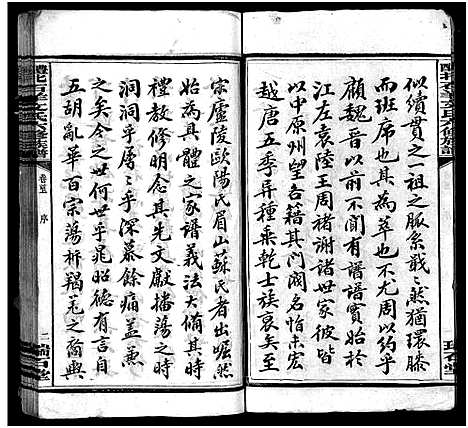 似續貫之一祖之脈系戢戢然猶環滕
而班席也其為萃也不尤周以約乎
顧魏晉以前有圖譜實始於
江左袁陸王周褚謝諸世家彼皆
以中原州望各籍其門閥名悟未宏
越唐五季種乘乾士族衰矣至
宗廬陵歐陽氏眉山蘇氏者出崛然
始為具體之家譜義法大備其時
禮教修明念其先文獻播蕩之時
洞洞乎屬屬乎深慕餘痛蓋魚
之矣今之世何世乎昭德有言
五胡亂華百宗蕩析羯羌之裔與
卷首
序
二